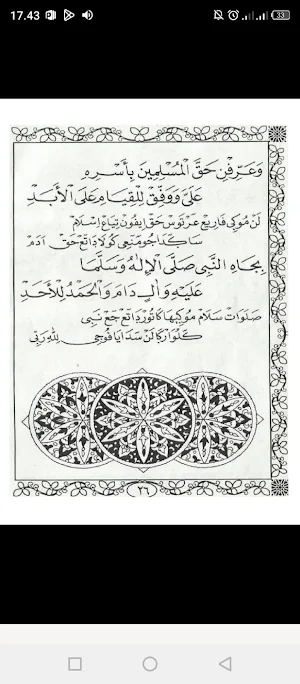 17.43
33
وَعَرِّفَنِ حَقَّ الْمُسْلِمِينَ بِأَسْرِهِ
عَلَيَّ وَوَفِّقْ لِلْقِيَامِ عَلَى الْأَبَدِ
لن موكي فاريع عرتوس حق ايفون تياع اسلام
ساكدا جومنع كولا داتع حق ادم
بِجَاهِ النَّبِي صَلَّى الْإِلٰهُ وَسَلَّمَا
عَلَيْهِ وَالِدَامَ وَالْحَمْدُ لِلْأَحَدِ
صلوات سلام موكيها كاتور داتع جع نبي
كلواركا لن سدايا فوجي لله ربي
٢٦